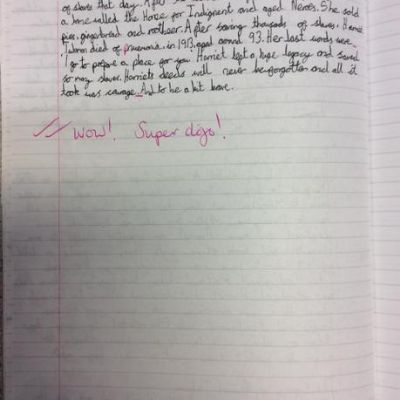 of slaves that day. After
a home called the Home for Indignent and aged Neroes. She sold
pies, gingerbread and rootbeer. After saving thousands of slaves. Harriet
Tubman died of pneumonia, in 1913, aged around 93. Her last words were
'I go to prepare a place for you. Harriet left a huge legacy and saved
so many slaves. Harriets deeds will never be forgotten and all it
took was courage. And to be a bit brave.
Wow! Super dojo!